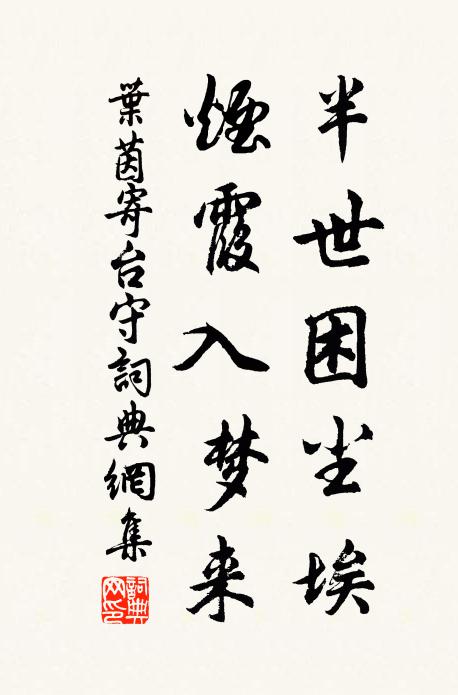 半世困尘埃
煙霞入梦来
葉茵寄台守詞典網集
詞典网印